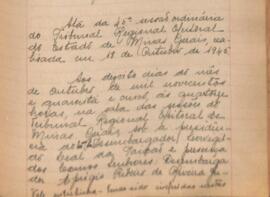 Ata da 45ª sessão ordinária
do Tribunal Regional Eleitoral
do Estado de Minas Gerais, rea-
lizada em 18 de Outubro de 1945
Aos dezoito dias do mês
de Outubro de mil novecentos
e quarenta e cinco, às quatorze
horas, na sala das sessões do
Tribunal Regional Eleitoral de
Minas Gerais, sob a presidên-
cia do Desembargador
Leal da e presença
dos Exmos. Senhores: Desembarga-
dor de Oliveira